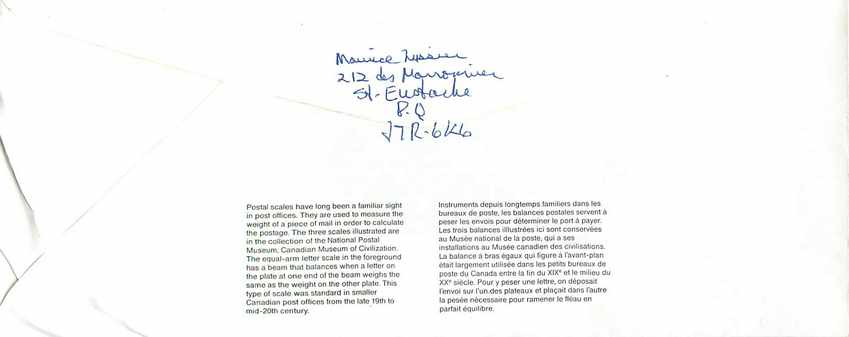 Maurice
212 des Marronnier
St-Eustache
P.Q
J7R-6K6
Postal scales have long been a familiar sight
in post offices. They are used to measure the
weight of a piece of mail in order to calculate
the postage. The three scales illustrated are
in the collection of the National Postal
Museum, Canadian Museum of Civilization.
The equal-arm letter scale in the foreground
has a beam that balances when a letter on
the plate at one end of the beam weighs the
same as the weight on the other plate. This
type of scale was standard in smaller
Canadian post offices from the late 19th to
mid-20th century.
Instruments depuis longtemps familiers dans les
bureaux de poste, les balances postales servent à
peser les envois pour déterminer le port à payer.
Les trois balances illustrées ici sont conservées
au Musée national de la poste, qui a ses
installations au Musée canadien des civilisations.
La balance à bras égaux qui figure à l'avant-plan
était largement utilisée dans les petits bureaux de
poste du Canada entre la fin du XIXe et le milieu du
XXe siècle. Pour y peser une lettre, on déposait
l'envoi sur l'un des plateaux et plaçait dans l'autre
la pesée nécessaire pour ramener le fléau en
parfait équilibre.